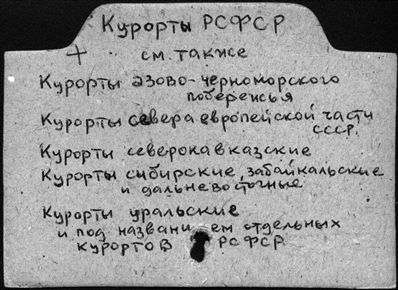 Курорты РСФСР
+ см. также
Курорты азово-черноморского
побережья
Курорты севера европейской части
СССР.
Курорты северокавказские
Курорты сибирские, забайкальские
и дальневосточные
Курорты уральские
и под названи ем отдельных
курортов РСФСР